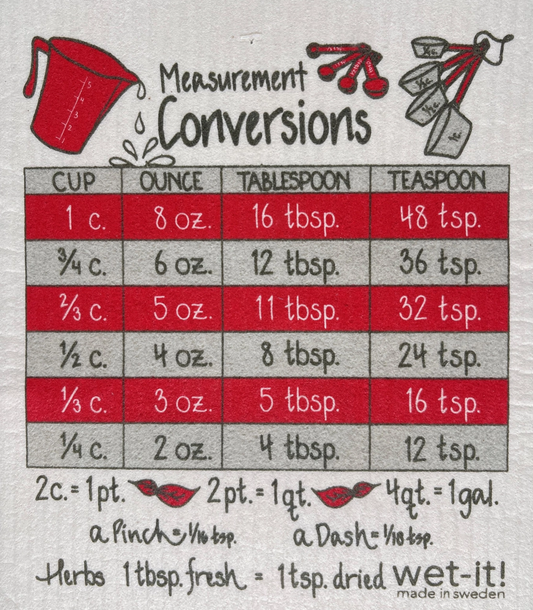 Measurement
Conversions
5
4
3
2
CUP OUNCE TABLESPOON TEASPOON
1 c. 8 oz. 16 tbsp. 48 tsp.
3/4 c. 6 oz. 12 tbsp. 36 tsp.
2/3 c. 5 oz. 11 tbsp. 32 tsp.
1/2 c. 4 oz. 8 tbsp. 24 tsp.
1/3 c. 3 oz. 5 tbsp. 16 tsp.
1/4 c. 2 oz. 4 tbsp. 12 tsp.
2c.=1pt. 2pt.=1qt. 4qt.=1gal.
a Pinch=1/16 tsp. a Dash=1/18 tsp.
Herbs 1tbsp. fresh = 1tsp. dried
wet-it!
made in sweden